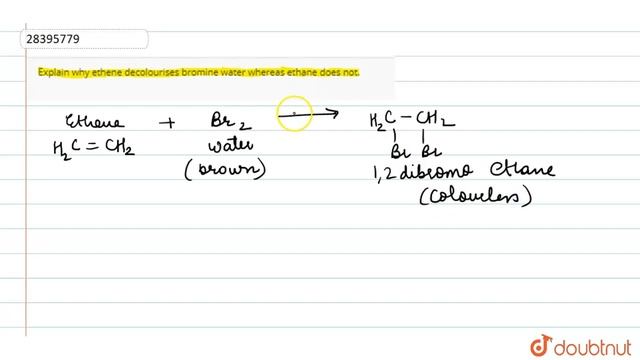 28395779
Explain why ethene decolourises bromine water whereas ethane does not.
Ethene + Br2 → H2C - CH2
H2C = CH2 water Br Br
(brown) 1,2 dibromo ethane
(Colourless)
doubtnut